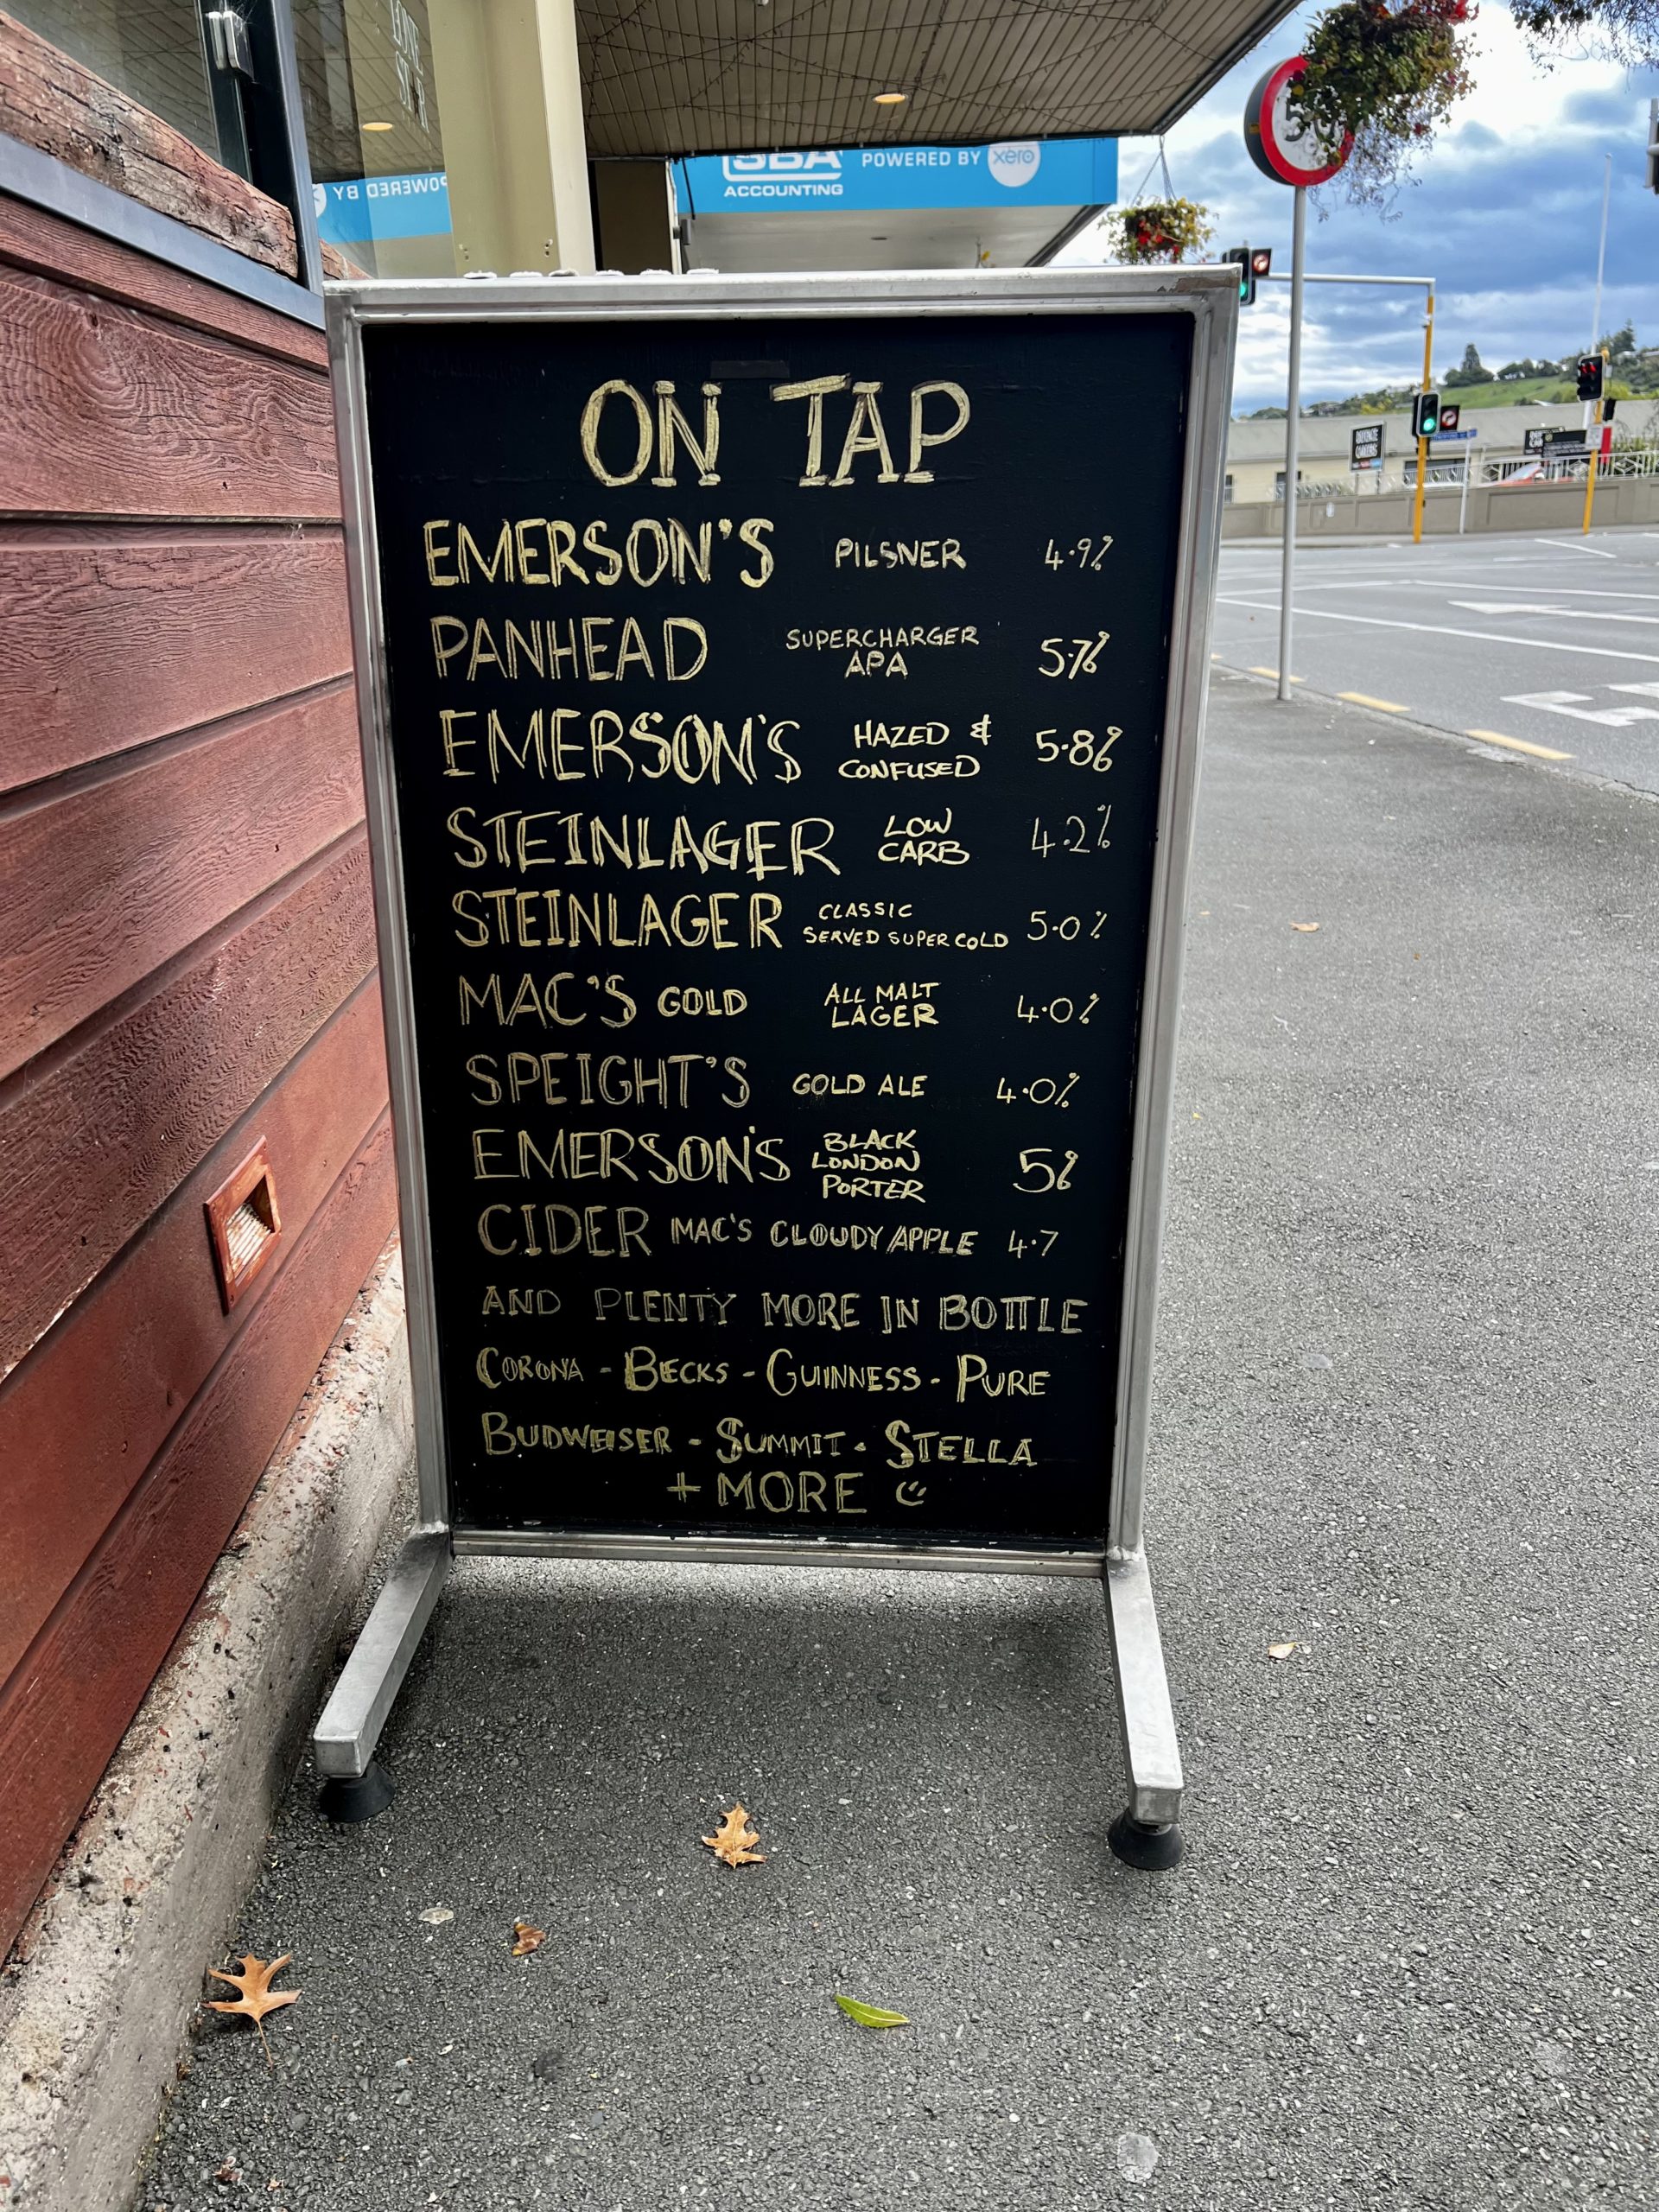 LONE
ST R
POWERED BY
SBA POWERED BY xero
ACCOUNTING
50
ON TAP
EMERSON'S PILSNER 4.9%
PANHEAD SUPERCHARGER APA 5.7%
EMERSON'S HAZED & CONFUSED 5.8%
STEINLAGER LOW CARB 4.2%
STEINLAGER CLASSIC SERVED SUPER COLD 5.0%
MAC'S GOLD ALL MALT LAGER 4.0%
SPEIGHT'S GOLD ALE 4.0%
EMERSON'S BLACK LONDON PORTER 5%
CIDER MAC'S CLOUDY APPLE 4.7
AND PLENTY MORE IN BOTTLE
CORONA - BECKS - GUINNESS - PURE
BUDWEISER - SUMMIT - STELLA
+ MORE